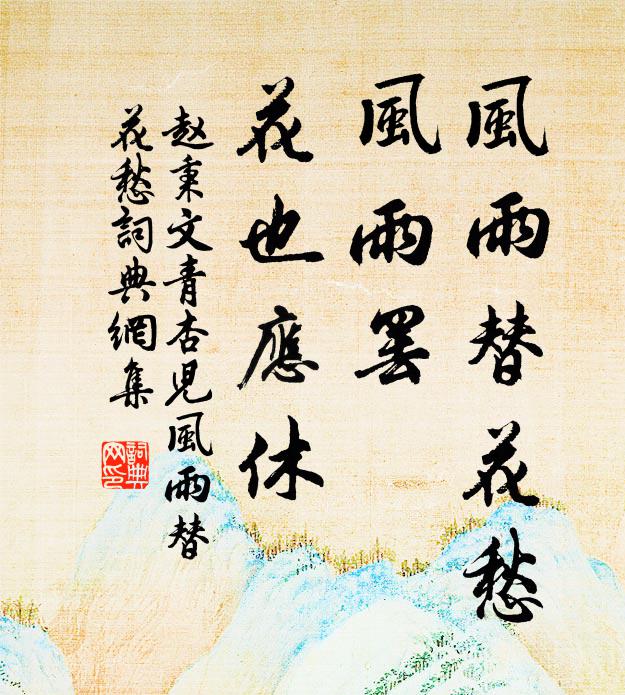 風雨替花愁
風雨罢
花也應休
赵秉文青杏児風雨替
花愁詞典網集
詞典
网印